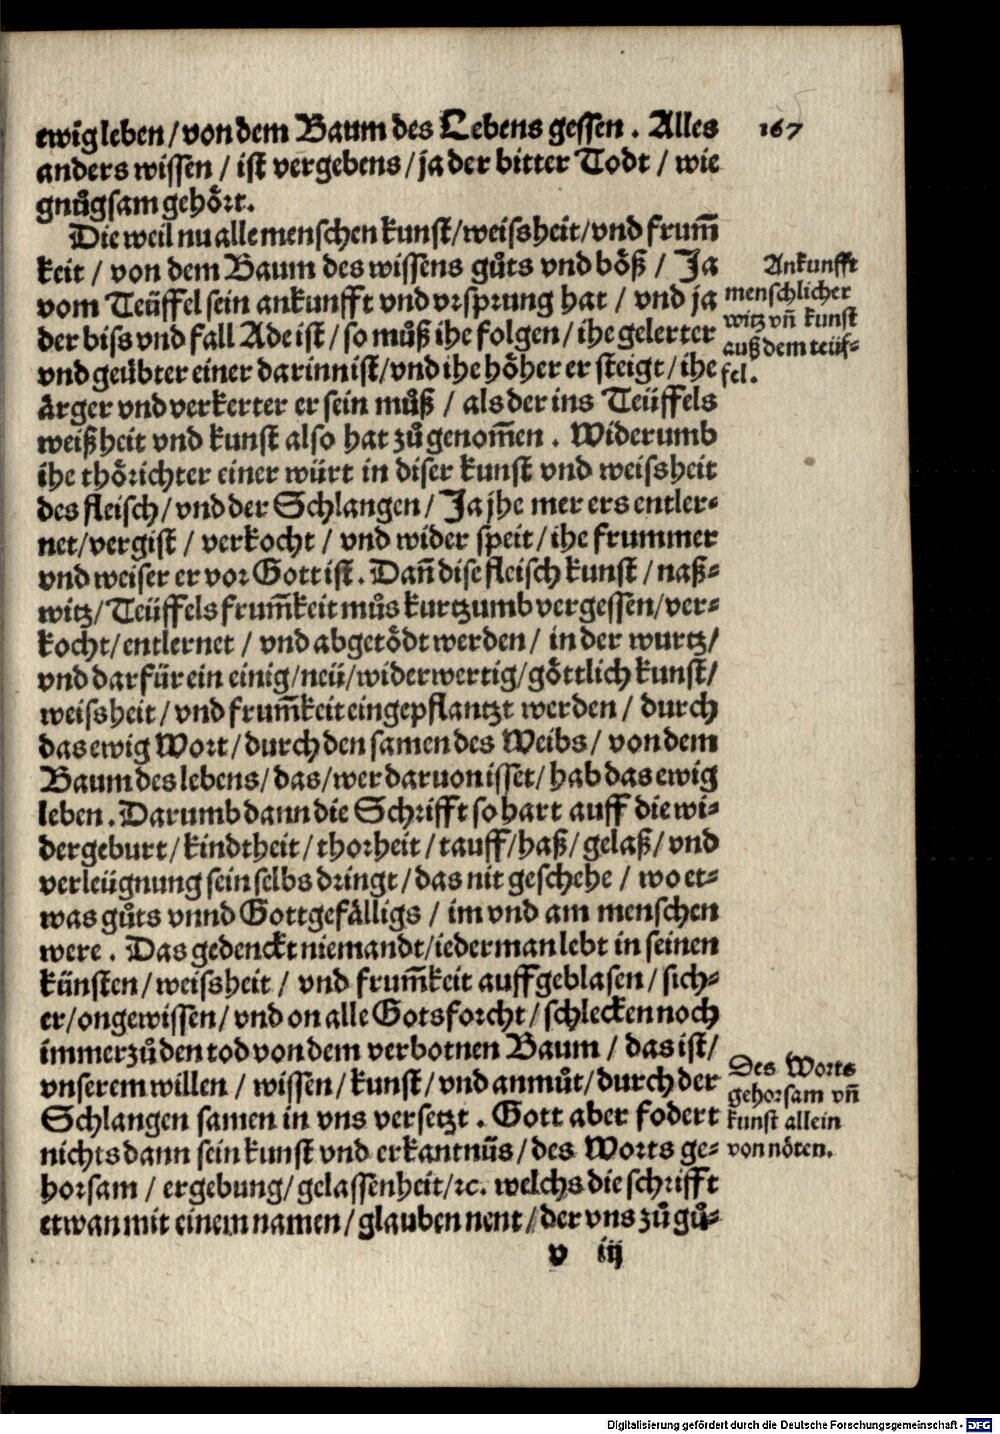 167
ewig leben / von dem Baum des Lebens gessen . Alles
anders wissen / ist vergebens / ja der bitter Todt / wie
gnůgsam gehört.
Die weil nu alle menschen kunst / weissheit / vnd frum̄
keit / von dem Baum des wissens gůts vnd böß / Ja
vom Teüffel sein ankunfft vnd vrsprung hat / vnd ja
der biss vnd fall Ade ist / so můß ihe folgen / ihe gelerter
vnd geübter einer darinn ist / vnd ihe höher er steigt / ihe
ärger vnd verkerter er sein můß / als der ins Teüffels
weißheit vnd kunst also hat zůgenom̄en . Widerumb
ihe thörichter einer würt in diser kunst vnd weissheit
des fleisch / vnd der Schlangen / Ja jhe mer ers entler-
net / vergist / verkocht / vnd wider speit / ihe frummer
vnd weiser er vor Gott ist . Dañ dise fleisch kunst / naß-
witz / Teüffels frum̄keit můs kurtzumb vergessen / ver-
kocht / entlernet / vnd abgetödt werden / in der wurtz /
vnd darfür ein einig / neü / widerwertig / göttlich kunst /
weissheit / vnd frum̄keit eingepflantzt werden / durch
das ewig Wort / durch den samen des Weibs / von dem
Baum des lebens / das / wer daruon isset / hab das ewig
leben . Darumb dann die Schrifft so hart auff die wi-
dergeburt / kindtheit / thorheit / tauff / haß / gelaß / vnd
verleügnung sein selbs dringt / das nit geschehe / wo et-
was gůts vnnd Gottgefälligs / im vnd am menschen
were . Das gedenckt niemandt / iederman lebt in seinen
künsten / weissheit / vnd frum̄keit auffgeblasen / sich-
er / on gewissen / vnd on alle Gotsforcht / schlecken noch
immerzů den tod von dem verbotnen Baum / das ist /
vnserem willen / wissen / kunst / vnd anmůt / durch der
Schlangen samen in vns versetzt . Gott aber fodert
nichts dann sein kunst vnd erkantnüs / des Worts ge-
horsam / ergebung / gelassenheit / ꝛc. welchs die schrifft
etwan mit einem namen / glauben nent / der vns zů gů-
v iij
Ankunfft
menschlicher
witz vñ kunst
auß dem teüf-
fel.
Des Worts
gehorsam vñ
kunst allein
von nöten.
Digitalisierung gefördert durch die Deutsche Forschungsgemeinschaft - DFG